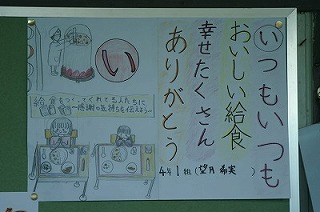 い
いつもいつも
おいしい給食
幸せたくさん
ありがとう
4年1組(望月 希実)
給食をつくってくれてる人たちに
〜感謝の気持ちを伝えよう〜